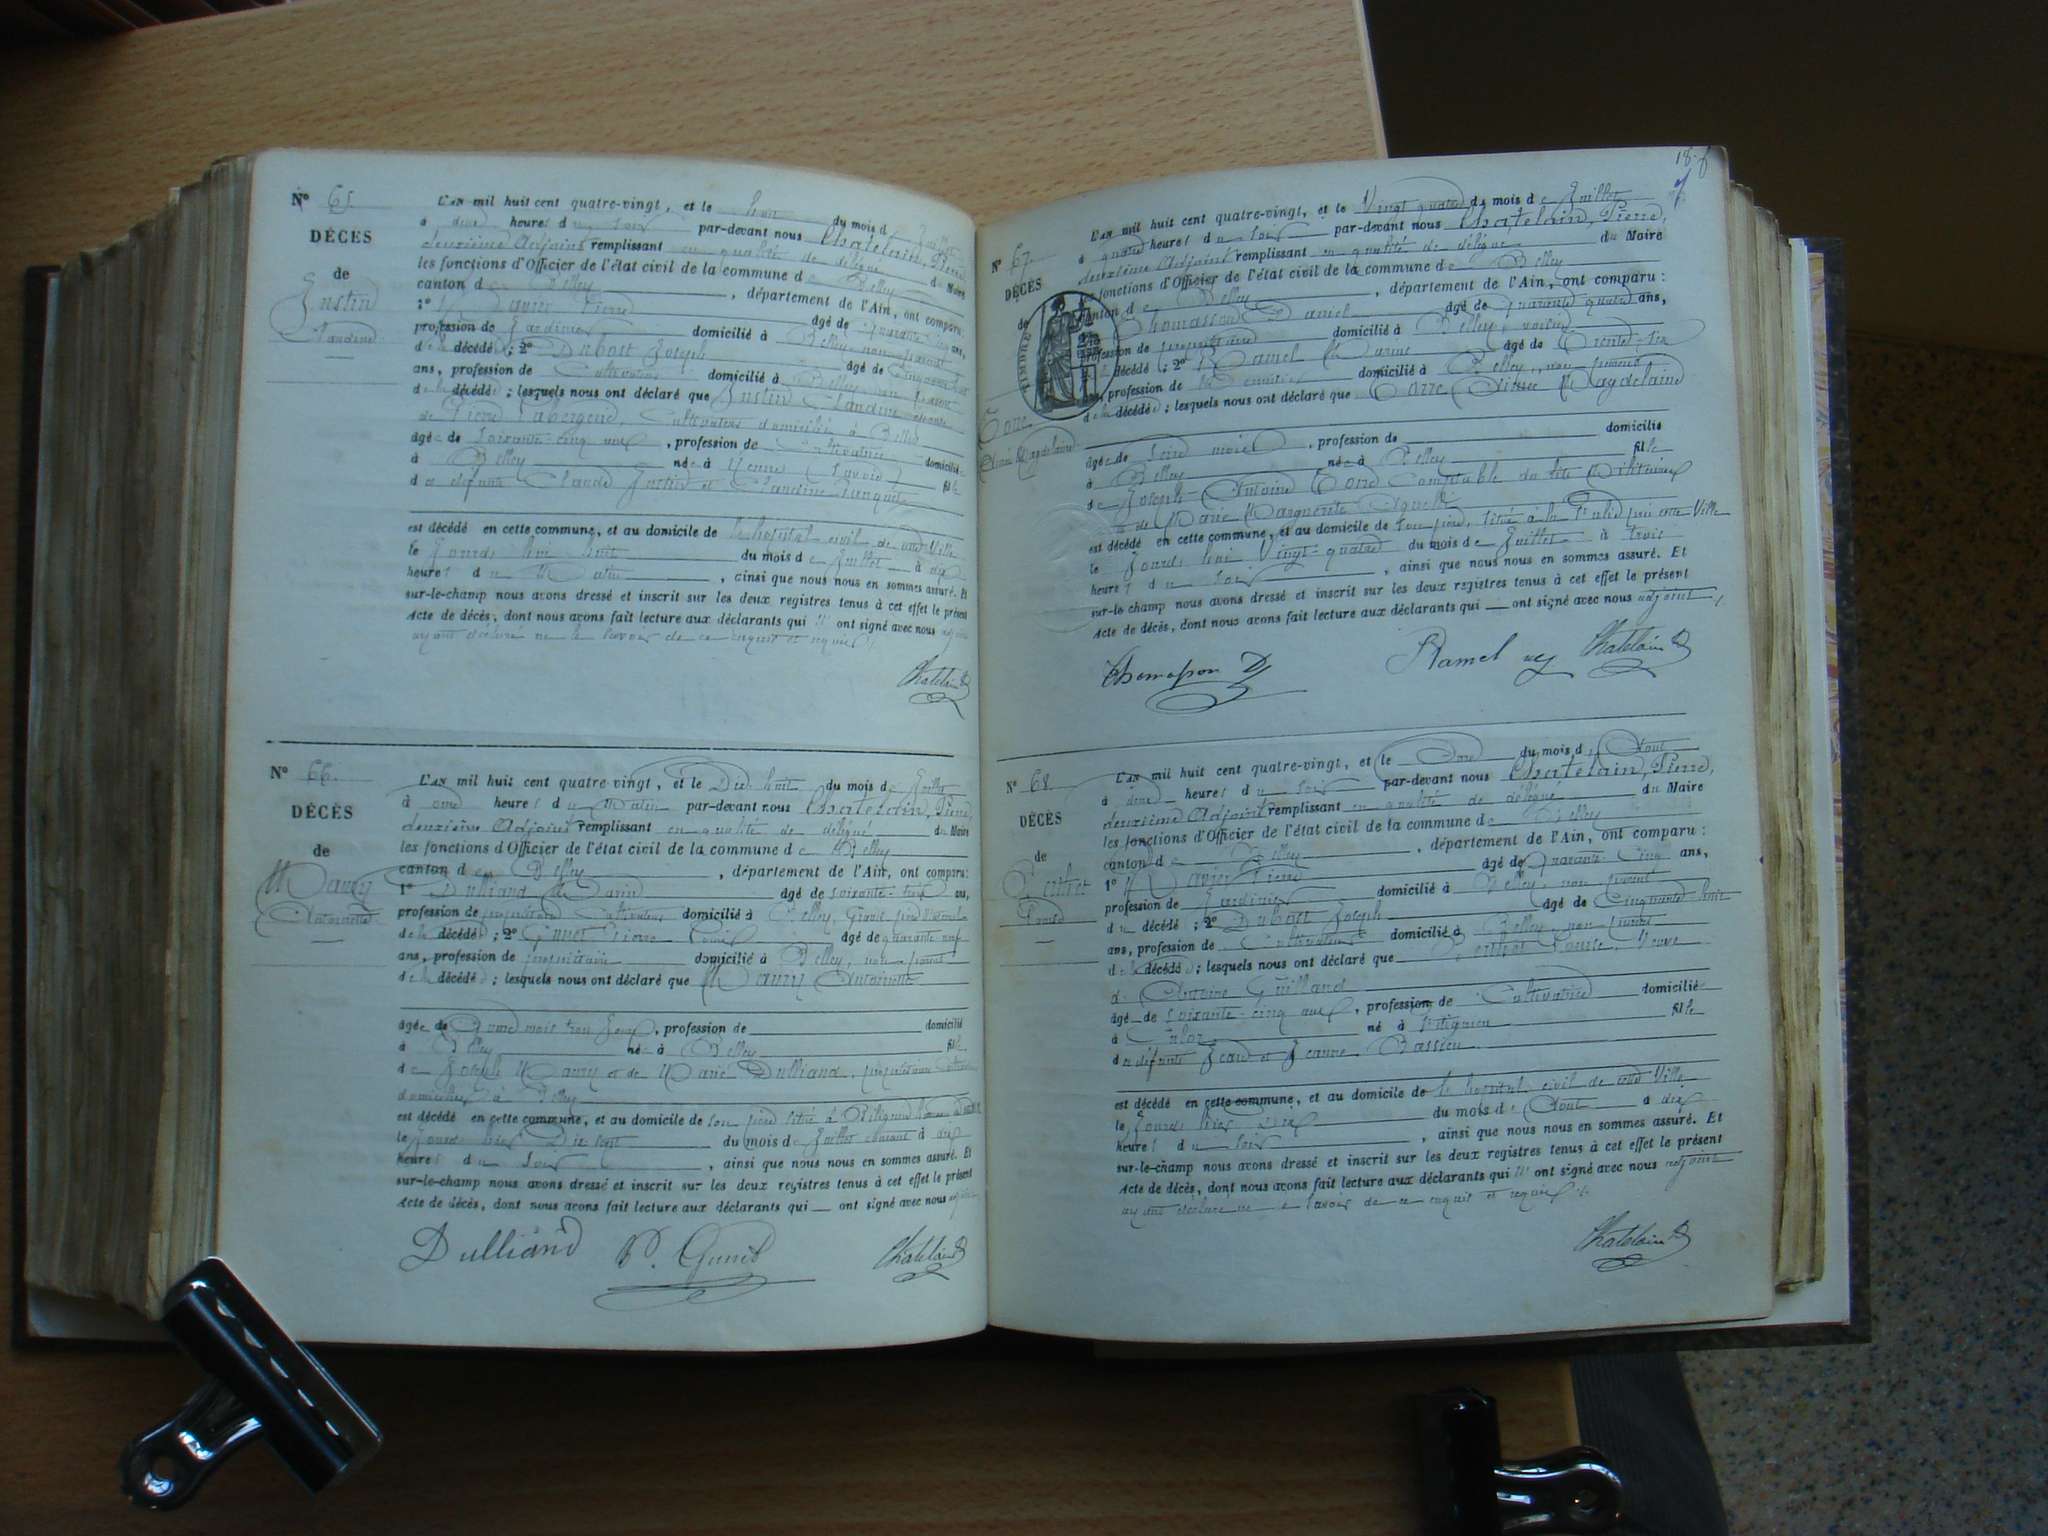 N° 65.
DÉCÈS
de
Justin
Claudine
L'AN mil huit cent quatre-vingt, et le huit du mois de Juillet
à deux heures du soir par-devant nous Chatelain, Pierre,
deuxième Adjoint remplissant en qualité de délégué du Maire
les fonctions d'Officier de l'état civil de la commune de Belley
canton de Belley, département de l'Ain, ont comparu :
1° Pierre âgé de quarante cinq ans,
profession de Jardinier domicilié à Belley non parent
de la décédée ; 2° Dubost Joseph âgé de Cinquante huit
ans, profession de Cultivateur domicilié à Belley non parent
de la décédée ; lesquels nous ont déclaré que Justin Claudine
de Pierre Cultivateur domicilié à Belley
âgée de soixante cinq ans, profession de Cultivatrice domicilié
à Belley née à Yenne (Savoie) fille
de défunts Claude Justin et Claudine
est décédé en cette commune, et au domicile de le hospital civil de cette Ville
le Jourd'hui huit du mois de Juillet à dix
heures du Matin, ainsi que nous nous en sommes assuré. Et
sur-le-champ nous avons dressé et inscrit sur les deux registres tenus à cet effet le présent
Acte de décès, dont nous avons fait lecture aux déclarants qui n' ont signé avec nous adjoint
ayant déclaré ne le savoir de ce enquis et requis.
Chatelain P
N° 66.
DÉCÈS
de
Maury
Antoinette
L'AN mil huit cent quatre-vingt, et le Dix huit du mois de Juillet
à onze heures du Matin par-devant nous Chatelain, Pierre,
deuxième Adjoint remplissant en qualité de délégué du Maire
les fonctions d'Officier de l'état civil de la commune de Belley
canton de Belley, département de l'Ain, ont comparu :
1° Dulliand Marin âgé de soixante-trois ans,
profession de propriétaire Cultivateur domicilié à Belley, Grand père Maternel
de la décédée ; 2° Gunet Pierre Louis âgé de quarante neuf
ans, profession de propriétaire domicilié à Belley, non parent
de la décédée ; lesquels nous ont déclaré que Maury Antoinette
âgée de Onze mois trois Jours, profession de domicilié
à Belley née à Belley fille
de Joseph Maury et de Marie Dulliand, propriétaires Cultivateurs
domiciliés à Belley
est décédé en cette commune, et au domicile de son père situé à
le Jourd'hier Dix sept du mois de Juillet courant à dix
heures du soir, ainsi que nous nous en sommes assuré. Et
sur-le-champ nous avons dressé et inscrit sur les deux registres tenus à cet effet le présent
Acte de décès, dont nous avons fait lecture aux déclarants qui — ont signé avec nous adjoint
Dulliand P. Gunet Chatelain P
18
N° 67.
DÉCÈS
de
TIMBRE
Torre
Aimée Magdelaine
L'AN mil huit cent quatre-vingt, et le Vingt quatre du mois de Juillet
à quatre heures du soir par-devant nous Chatelain, Pierre,
deuxième Adjoint remplissant en qualité de délégué du Maire
les fonctions d'Officier de l'état civil de la commune de Belley
canton de Belley, département de l'Ain, ont comparu :
Thomasson Daniel âgé de quarante quatre ans,
profession de propriétaire domicilié à Belley, voisin
décédé ; 2° Ramel Marius âgé de Trente-six
ans, profession de domicilié à Belley, non parent
de la décédée ; lesquels nous ont déclaré que Torre Aimée Magdelaine
âgée de seize mois, profession de domicilié
à Belley née à Belley fille
de Joseph Antoine Torre Comptable des lits Militaires
& de Marie Marguerite
est décédé en cette commune, et au domicile de son père, situé à la près cette Ville
le Jourd'hui Vingt-quatre du mois de Juillet à trois
heures du soir, ainsi que nous nous en sommes assuré. Et
sur-le-champ nous avons dressé et inscrit sur les deux registres tenus à cet effet le présent
Acte de décès, dont nous avons fait lecture aux déclarants qui — ont signé avec nous adjoint.
Thomasson D Ramel Chatelain P
N° 68.
DÉCÈS
de
Louise
L'AN mil huit cent quatre-vingt, et le Onze du mois d'Août
à deux heures du soir par-devant nous Chatelain, Pierre,
deuxième Adjoint remplissant en qualité de délégué du Maire
les fonctions d'Officier de l'état civil de la commune de Belley
canton de Belley, département de l'Ain, ont comparu :
1° Pierre âgé de Quarante-Cinq ans,
profession de Jardinier domicilié à Belley, non parent
du décédé ; 2° Dubost Joseph âgé de Cinquante-huit
ans, profession de Cultivateur domicilié à Belley, non parent
de la décédée ; lesquels nous ont déclaré que Louise, Veuve
d' Antoine Guilland
âgé de soixante-cinq ans, profession de Cultivatrice domicilié
à Culoz né à fille
de défunts Jean et Jeanne Bassieu
est décédé en cette commune, et au domicile de le hospital civil de cette Ville
le Jourd'hier dix du mois d'Août à dix
heures du soir, ainsi que nous nous en sommes assuré. Et
sur-le-champ nous avons dressé et inscrit sur les deux registres tenus à cet effet le présent
Acte de décès, dont nous avons fait lecture aux déclarants qui n' ont signé avec nous adjoint
ayant déclaré ne le savoir de ce enquis et requis.
Chatelain P